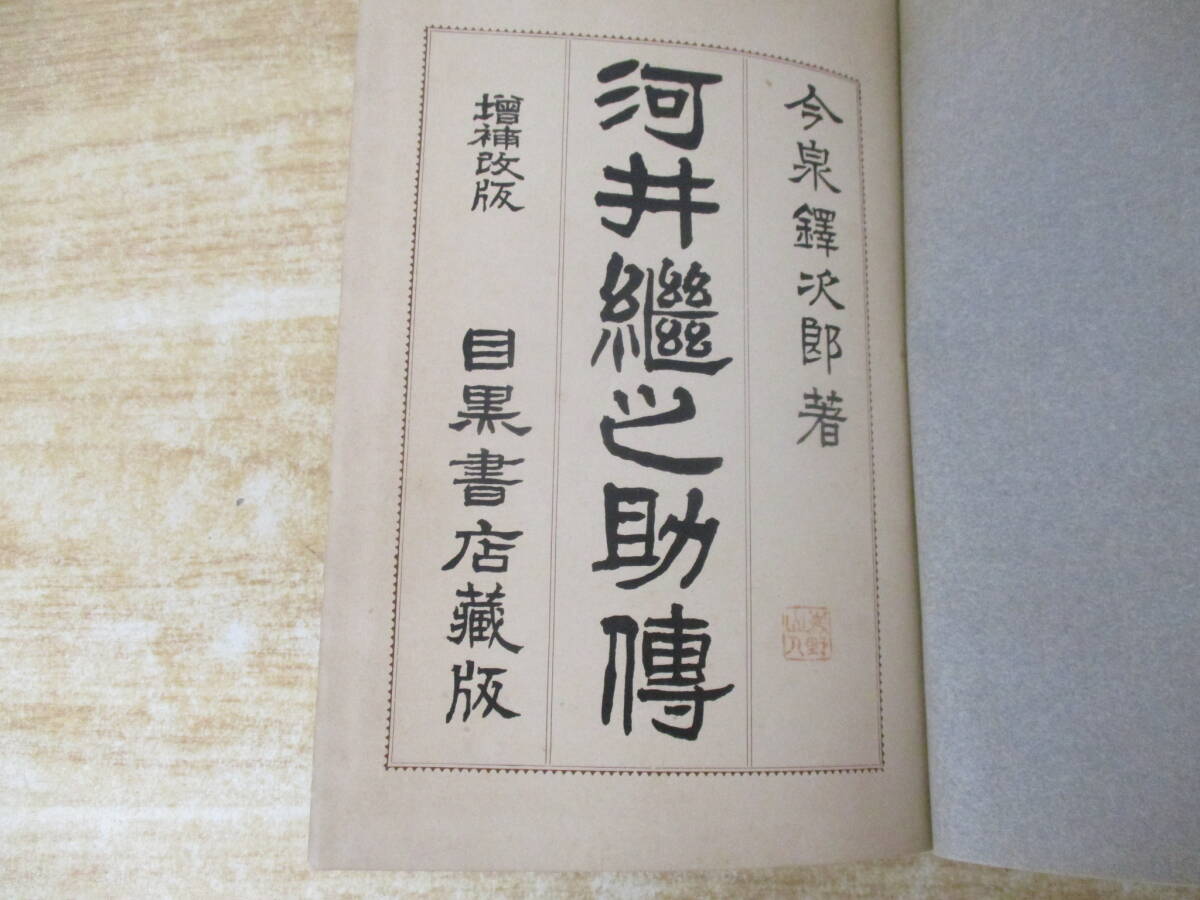 今泉鐸次郎著
河井繼之助傳
增補改版
目黒書店藏版